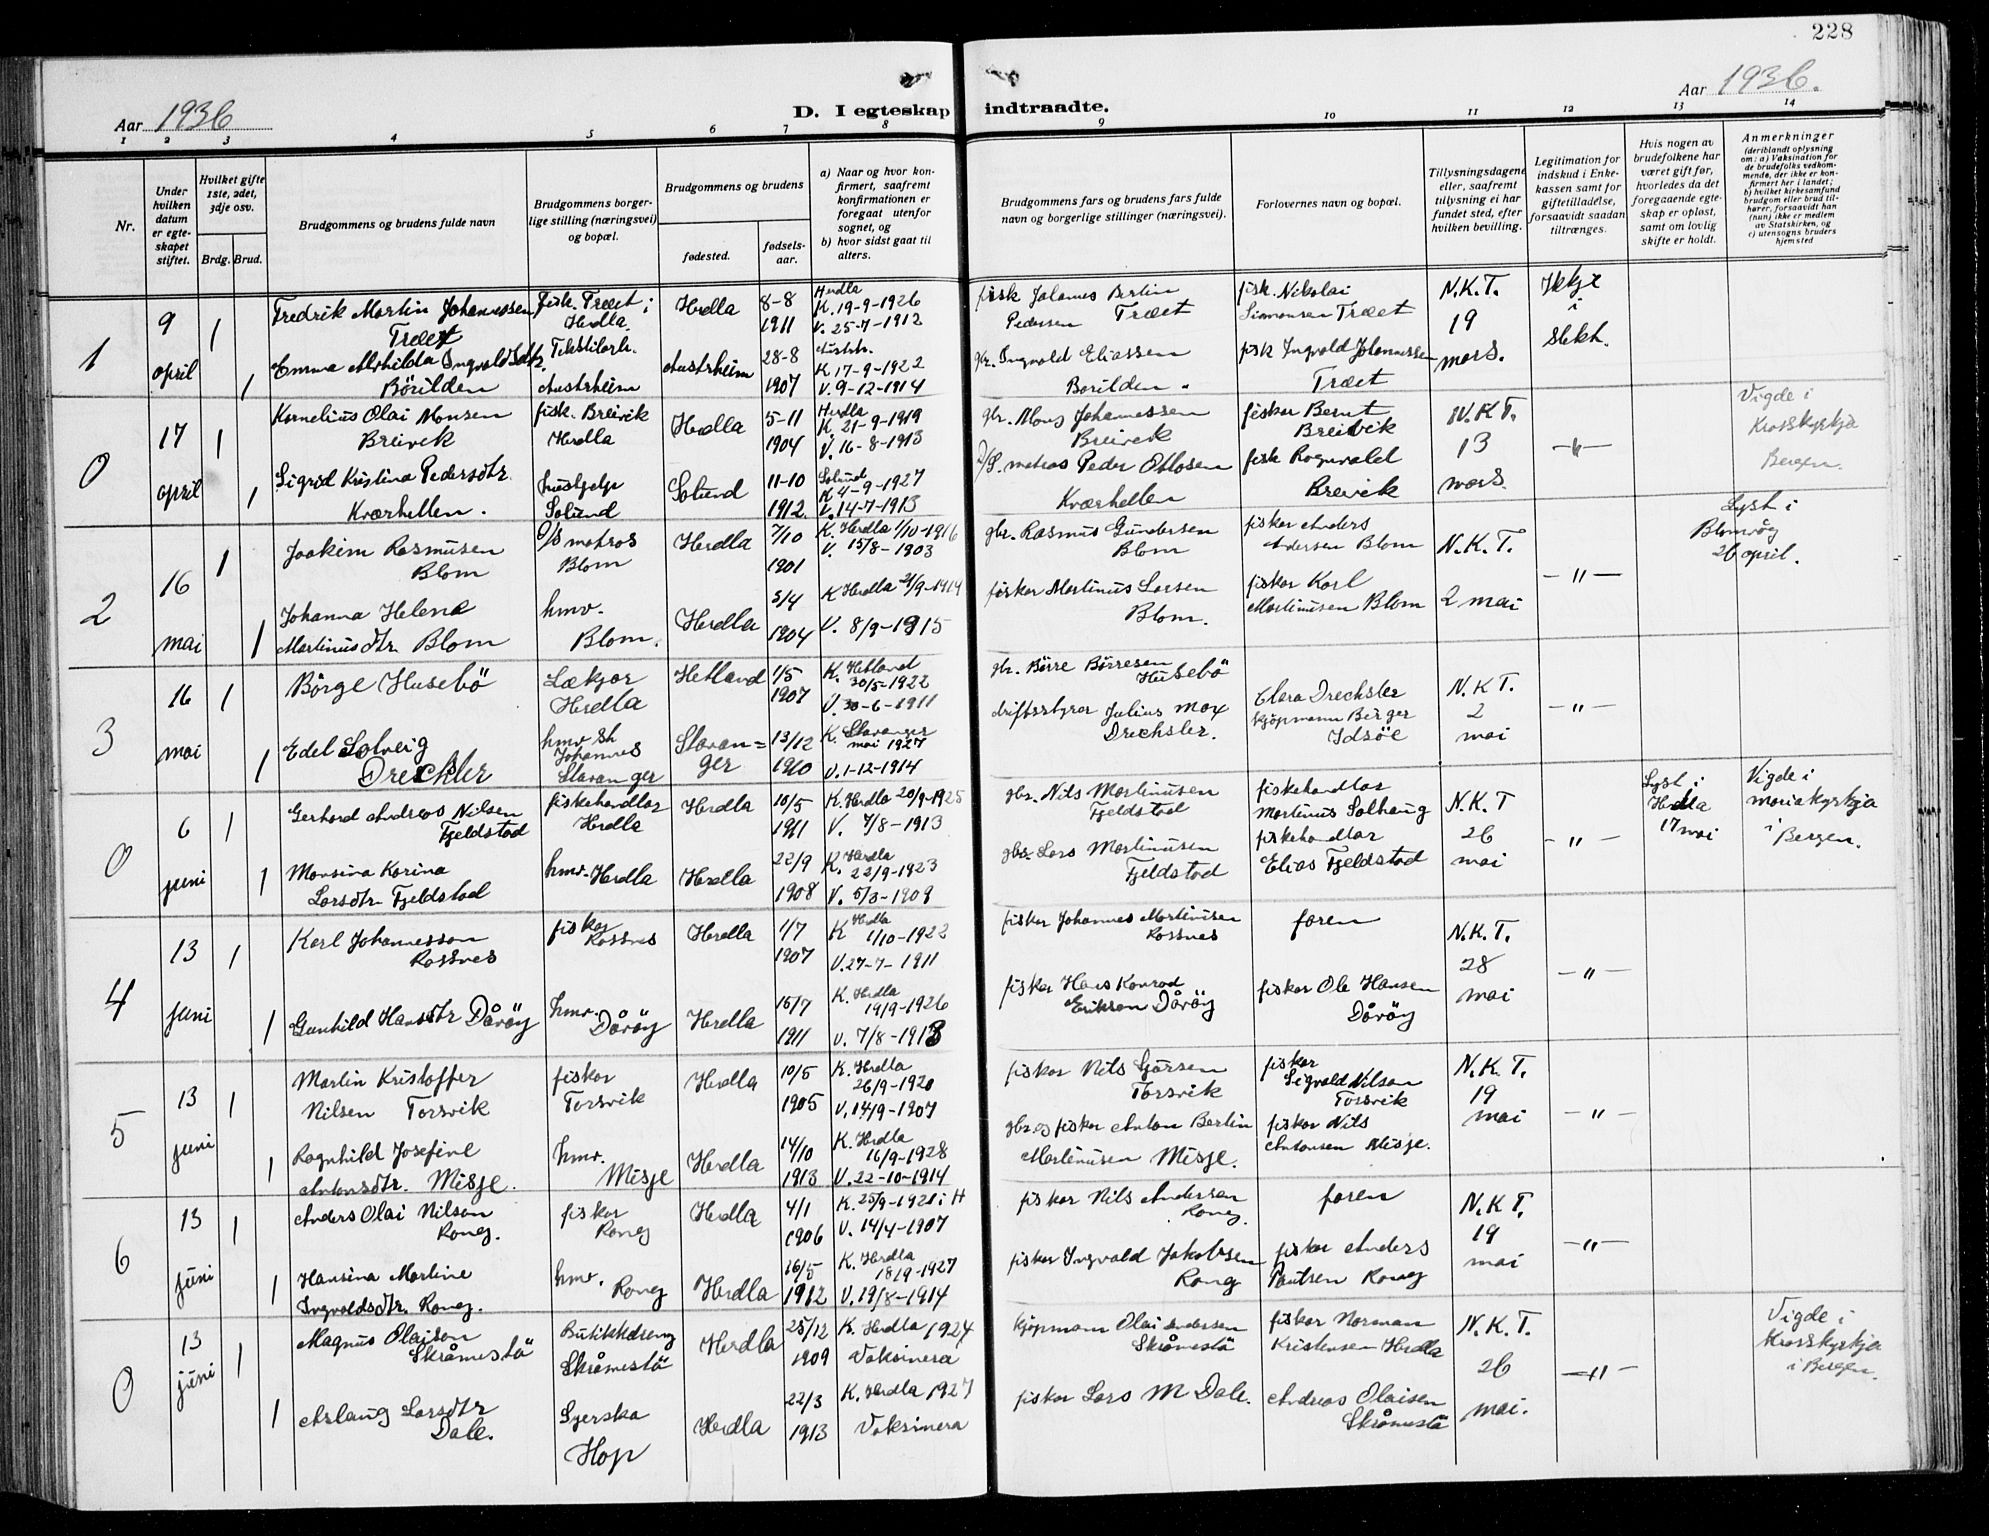 228
Aar 1936
D. I egteskap indtraadte.
Aar 1936.
1 2 3 4 5 6 7 8 9 10 11 12 13 14
Nr.
Under hvilken datum er egteskapet stiftet.
Hvilket gifte 1ste, 2det, 3dje osv.
Brdg. Brud.
Brudgommens og brudens fulde navn
Brudgommens borgerlige stilling (næringsvei) og bopæl.
Brudgommens og brudens
fødested. fødselsaar.
a) Naar og hvor konfirmert, saafremt konfirmationen er foregaat utenfor sognet, og
b) hvor sidst gaat til alters.
Brudgommens fars og brudens fars fulde navn og borgerlige stillinger (næringsvei).
Forlovernes navn og bopæl.
Tillysningsdagene eller, saafremt tillysning ei har fundet sted, efter hvilken bevilling.
Legitimation for indskud i Enkekassen samt for giftetilladelse, forsaavidt saadan tiltrænges.
Hvis nogen av brudefolkene har været gift før, hvorledes da det foregaaende egteskap er opløst, samt om lovlig skifte er holdt.
Anmerkninger
(deriblandt oplysning om: a) Vaksination for de brudefolks vedkommende, der ikke er konfirmert her i landet; b) hvilket kirkesamfund brudgom eller brud tilhører, forsaavidt han (hun) ikke er medlem av Statskirken, og c) utensogns bruders hjemsted
1 9 april 1 Fredrik Martin Johannessen Træet fisk. Træet i Herdla. Herdla 8-8 1911 Herdla K. 19-9-1926 V. 25-7-1912 fisk Johannes Bertin Pedersen Træet fisk. Nikolai Simonsen Træet N.K.T. 19 mars. Ikkje i slekt.
1 Emma Mathilda Ingvoldsdtr. Børilden Tekstilarb. Austrheim Austrheim 28-8 1907 Austrh. K 17-9-1922 V. 9-12-1914 gbr. Ingvald Eliassen Børilden fisk Ingvald Johannessen Træet
0 17 april 1 Kornelius Olai Monsen Breivik fisk. Breivik Herdla Herdla 5-11 1904 Herdla K 21-9-1919 V. 16-8-1913 gbr. Mons Johannessen Breivik fiskar Bernt Breivik N.K.T. 13 mars. -"- Vigde i Krosskyrkja Bergen.
1 Sigrid Kristina Pedersdtr. Kværhellen. hushjelp Solund Solund 11-10 1912. Solund K 4-9-1927 V. 14-7-1913 D/S. matros Peder Ottosen Kværhellen fisk Rognvald Breivik
2 16 mai 1 Joakim Rasmusen Blom D/S matros Blom Herdla 7/10 1901 K. Herdla 1/10-1916 V. 15/8-1903 gbr. Rasmus Gundersen Blom fiskar Anders Andersen Blom N.K.T. 2 mai -"- Lyst i Blomvåg 26 april.
1 Johanna Helene Martinusdtr. Blom hmv. Blom. Herdla 5/4 1904 K Herdla 21/9-1919 V. 8/9-1915 fiskar Martinus Larsen Blom. fiskar Karl Martinusen Blom
3 16 mai 1 Børge Husebö Lækjar Herdla Hetland 1/5 1907 K. Hetland 30/5-1922 V. 30-6-1911 gbr. Børre Børresen Husebö Clara Drechsler N.K.T. 2 mai -"-
1 Edel Solveig Drechsler hmv. St Johannes Stavanger Stavanger 13/12 1910 K. Stavanger mai 1927 V. 1-12-1914 driftsstyrar Julius Max Drechsler. kjøpmann Birger Idsöe
0 6 juni 1 Gerhard Andreas Nilsen Fjeldstad fiskehandlar Herdla Herdla 10/5 1911 K. Herdla 20/9-1925 V. 7/8-1913 gbr. Nils Martinusen Fjeldstad fiskehandlar Martinus Solhaug N.K.T 26 mai -"- Lyst i Herdla 17 mai Vigde i mariakyrkja i Bergen.
1 Monsina Karina Larsdtr Fjeldstad hmv. Herdla Herdla 22/9 1908 K. Herdla 22/9-1923 V. 5/3-1909 gbr. Lars Martinusen Fjeldstad fiskehandlar Elias Fjeldstad
4 13 juni 1 Karl Johannesson Rossnes fiskar Rossnes Herdla 1/7 1907 K Herdla 1/10-1922 V. 27-7-1911 fiskar Johannes Martinusen Rossnes faren N.K.T. 28 mai -"-
1 Gunhild Hansdtr Dåvöy hmv. Dåvöy Herdla 15/7 1911 K. Herdla 19/9-1926 V. 7/8-1913 fiskar Hans Konrad Erikson Dåvöy fiskar Ole Hansen Dåvöy
5 13 juni 1 Martin Kristoffer Nilsen Torsvik fiskar Torsvik Herdla 10/5 1905 K. Herdla 26/9-1920 V. 14/9-1907 fiskar Nils Gjörsen Torsvik fiskar Sigvald Nilson Torsvik N.K.T. 19 mai -"-
1 Ragnhild Josefine Antonsdtr. Misje. hmv. Misje Herdla 14/10 1913 K. Herdla 16/9-1928 V. 22-10-1914 gbr. og fiskar Anton Bertin Martinusen Misje. fiskar Nils Antonsen Misje.
6 13 juni 1 Anders Olai Nilson Rong. fiskar Rong Herdla 4/1 1906 K. 25/9-1921 i H V. 14/4-1907 fiskar Nils Andersen Rong. faren N.K.T. 19 mai -"-
1 Hansina Martine Ingvaldsdtr. Rong. hmv. Rong Herdla 16/5 1912 K. Herdla 18/9-1927 V. 19/8-1914 fiskar Ingvald Jakobsen Rong fiskar Anders Paulsen Rong
0 13 juni 1 Magnus Olaison Skråmestö Butikkdreng Skråmestö Herdla 25/12 1909 K. Herdla 1924 Vaksinera kjøpmann Olai Andersen Skråmestö fiskar Norman Kristensen Herdla N.K.T. 26 mai. -"- Vigde i Krosskyrkja i Bergen.
1 Aslaug Larsdtr Dale. Syerska Hop Herdla 22/3 1913 K. Herdla 1927 Vaksinera fiskar Lars M Dale. Andreas Olaisen Skråmestö